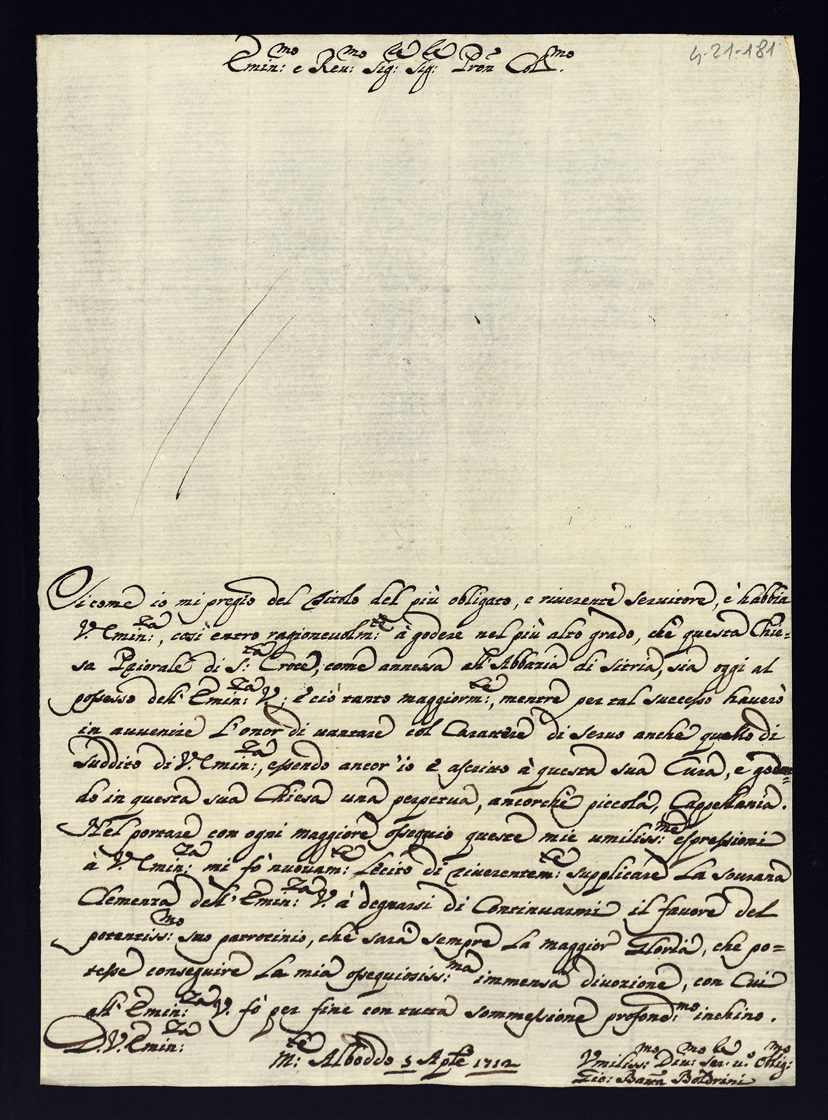 4-21-181
Emin:mo e Reu:mo Sig:re Sig:re Pron Col:mo
Si come io mi pregio del titolo del più obligato, e riuerente seruitore, è habbia
V. Emin:za, così entro ragioneuolm:te à godere nel più alto grado, che questa Chie=
sa Priorale di S:ta Croce, come annessa all'Abbazia di Sitria, sia oggi al
possesso dell'Emin:za V: è ciò tanto maggiorm:te, mentre per tal successo hauerò
in auuenire l'onor di uantare col Carattere di Seruo anche quello di
Suddito di V. Emin:za, essendo ancor'io è ascrito à questa sua Cura, e goden=
do in questa sua Chiesa una perpetua, ancorche piccola, Cappellania.
Nel portare con ogni maggiore ossequio queste mie umiliss:me espressioni
à V. Emin:za mi fò nuouam:te lecito di riuerentem:te supplicare la sourana
Clemenza dell'Emin:za V. à degnarsi di Continuarmi il fauore del
potentiss:mo suo patrocinio, che sarà sempre la maggior Gloria, che po=
tesse conseguire la mia ossequiosiss:ma immensa diuozione, con Cui
all'Emin:za V. fò per fine con tutta sommessione profond:mo inchino.
D. V. Emin:za
M:te Alboddo 5 Aple 1712
Vmiliss:mo Diu:mo Ser:re u:o Oblig:mo
Gio: Batta Boldrini